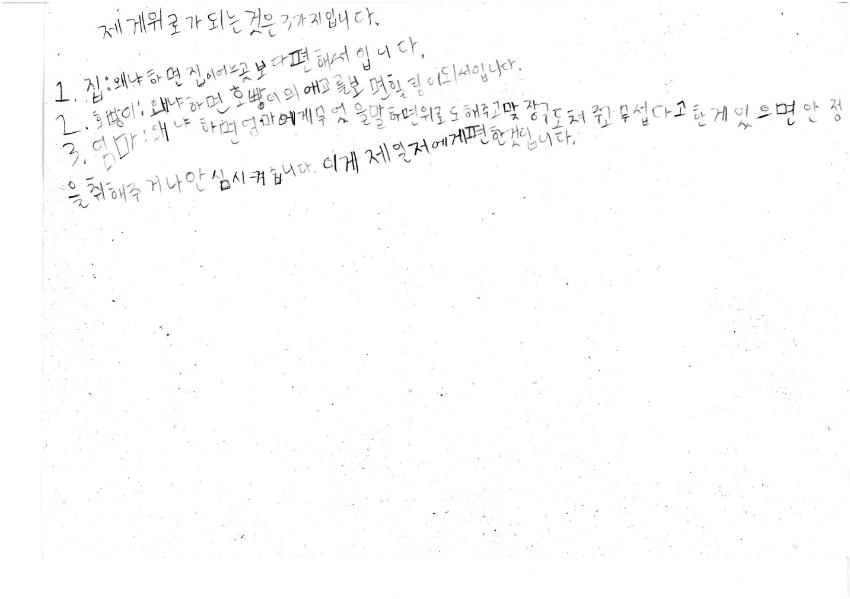 제게위로가 되는 것은 3가지입니다.
1. 집:왜냐하면 집이어느곳보다편해서입니다.
2. 호빵이: 왜냐하면 호빵이의 애교를보면힐링이되서입니다.
3. 엄마:왜냐하면엄마에게무엇을말하면위로도해주고맞장구도쳐주고무섭다고한게있으면안정
을취해주거나안심시켜줍니다. 이게제일저에게편한것입니다.